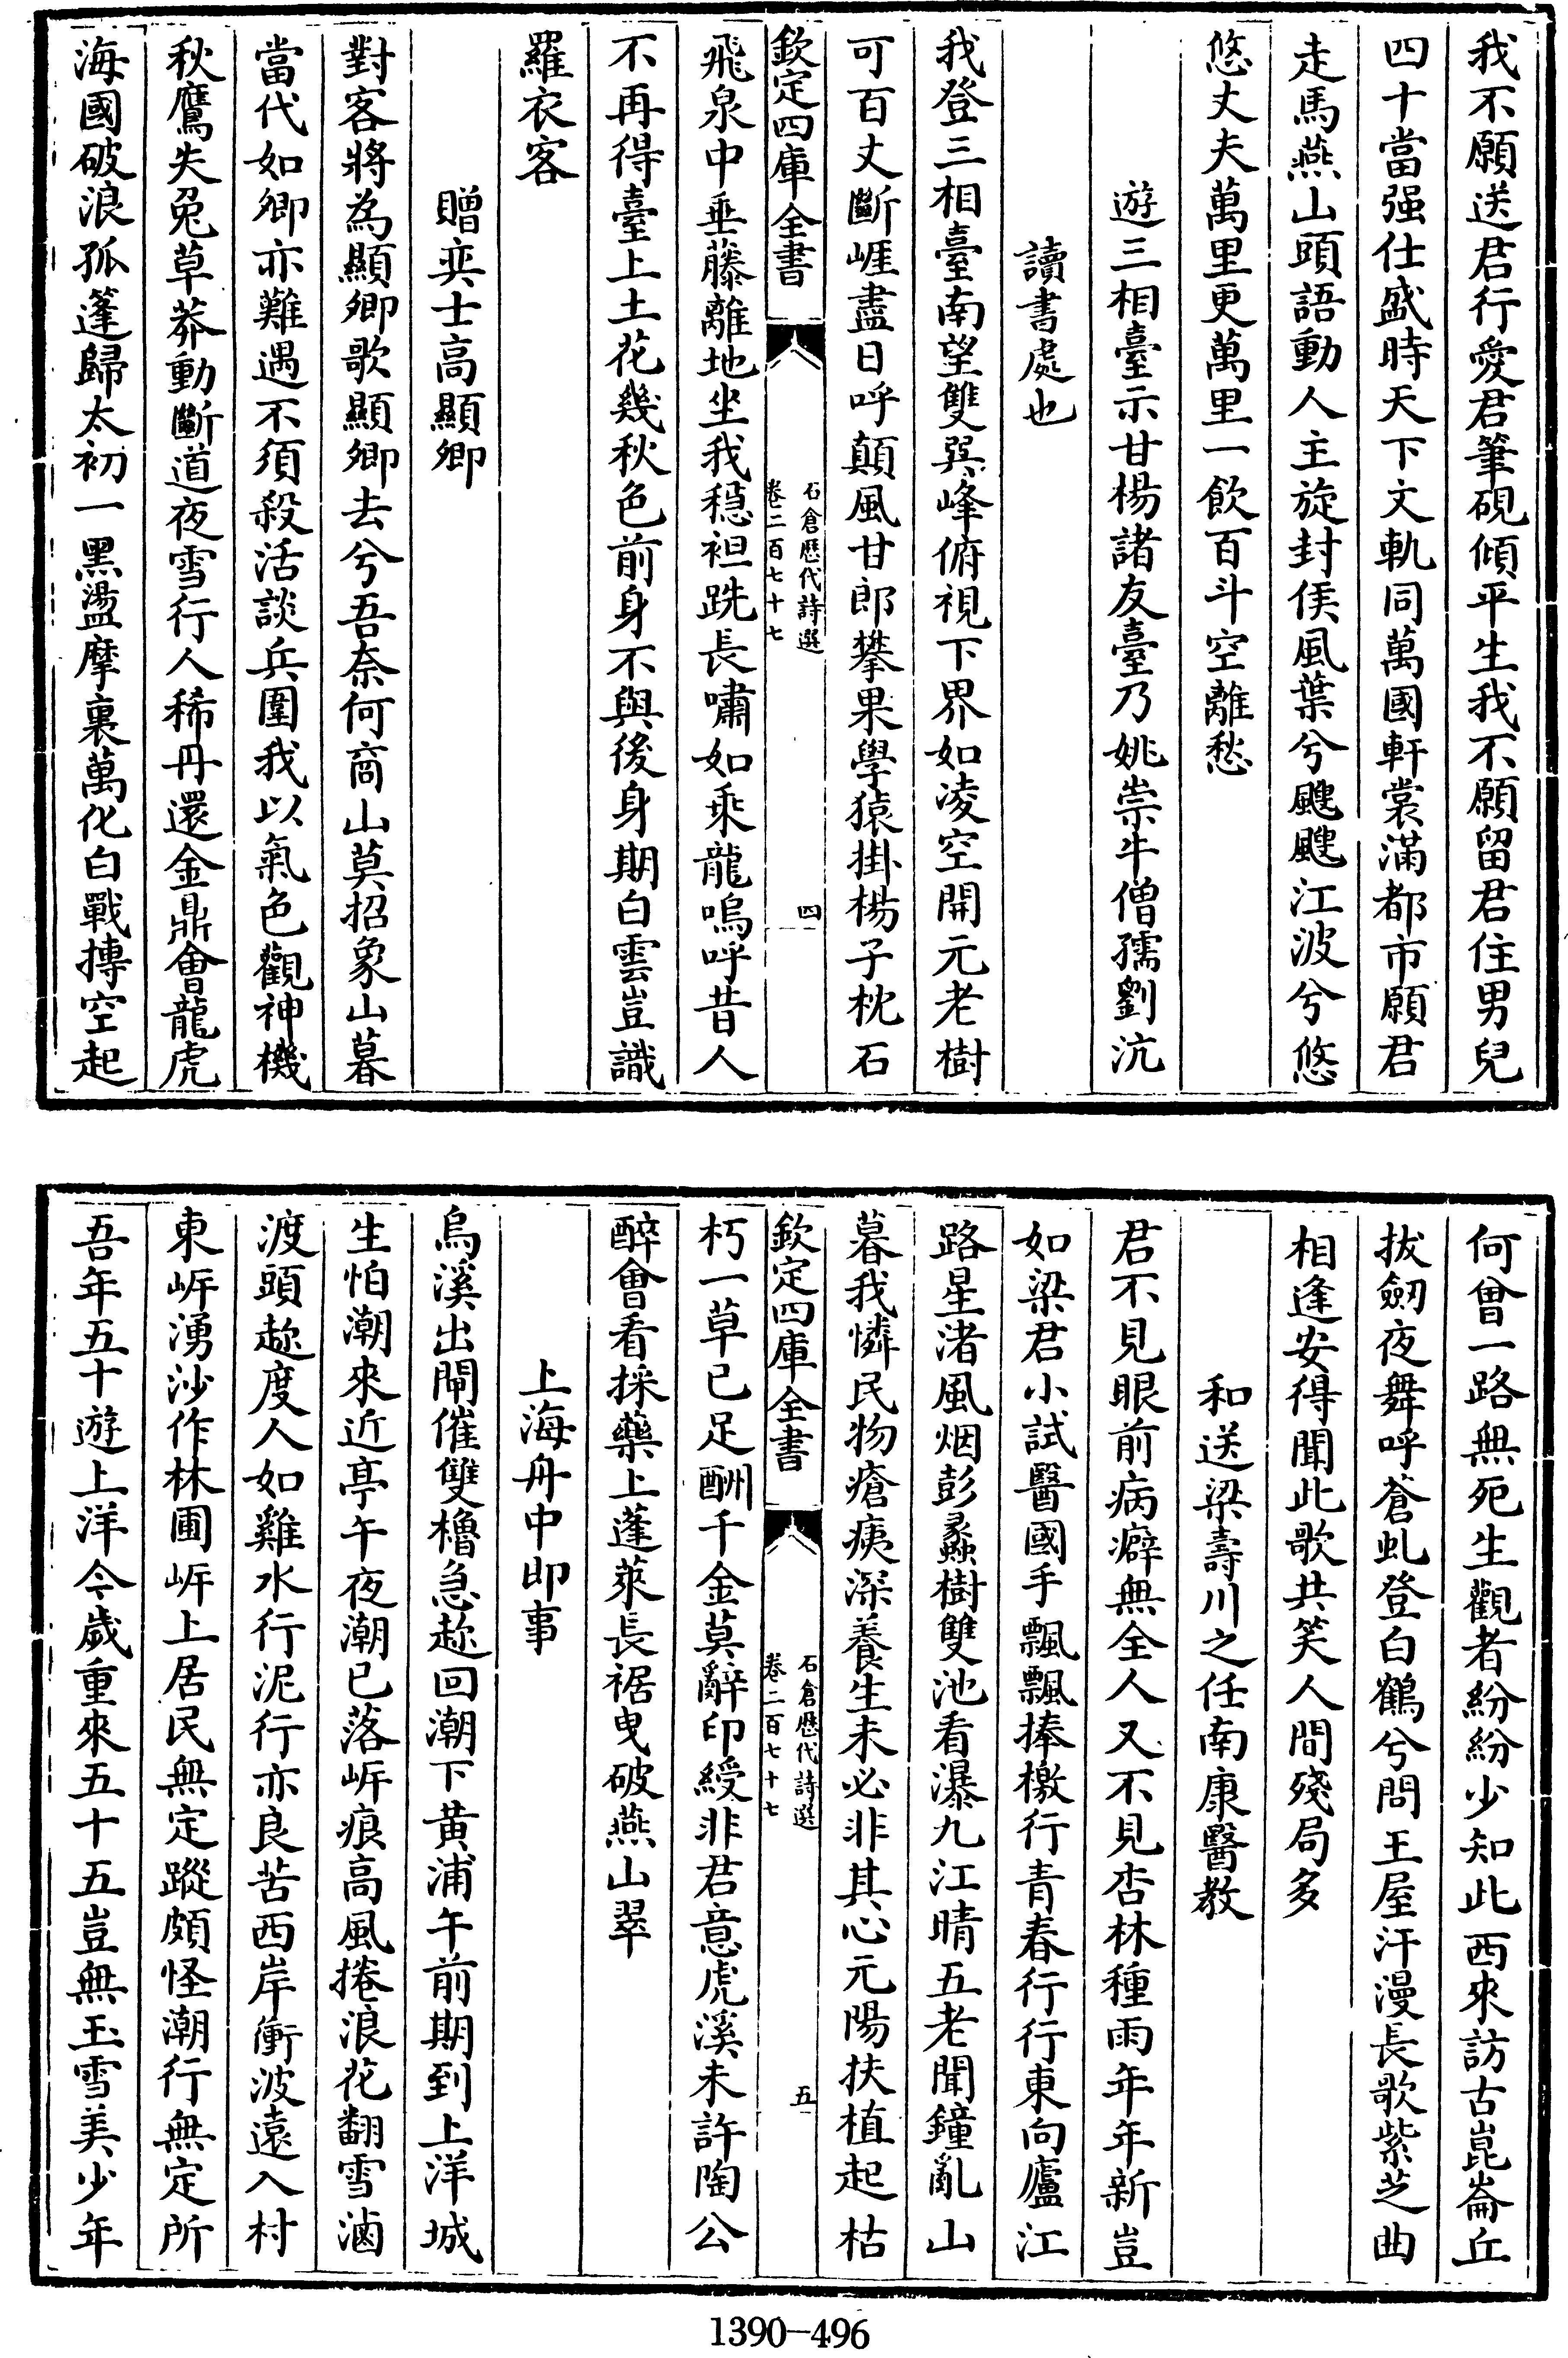 我不願送君行愛君筆硯傾平生我不願留君住男兒
四十當强仕盛時天下文軌同萬國軒裳滿都市願君
走馬燕山頭語動人主旋封侯風葉兮颼颼江波兮悠
悠丈夫萬里更萬里一飲百斗空離愁
遊三相臺示甘楊諸友臺乃姚崇牛僧孺劉沆
讀書處也
我登三相臺南望雙巽峰俯視下界如凌空開元老樹
可百丈斷崕盡日呼顛風甘郎攀果學猿掛楊子枕石
欽定四庫全書
石倉歴代詩選
卷二百七十七
四
飛泉中垂藤離地坐我穏袒跣長嘯如乘龍嗚呼昔人
不再得臺上土花幾秋色前身不與後身期白雲豈識
羅衣客
贈奕士高顯卿
對客將為顯卿歌顯卿去兮吾奈何商山莫招象山暮
當代如卿亦難遇不須殺活談兵圍我以氣色觀神機
秋鷹失兔草莽動斷道夜雪行人稀丹還金鼎會龍虎
海國破浪孤篷歸太初一黑盪摩裏萬化白戰摶空起
何曾一路無死生觀者紛紛少知此西來訪古崑崙丘
拔劒夜舞呼蒼虬登白鶴兮問王屋汗漫長歌紫芝曲
相逢安得聞此歌共笑人間殘局多
和送梁壽川之任南康醫教
君不見眼前病癖無全人又不見杏林種雨年年新豈
如梁君小試醫國手飄飄捧檄行青春行行東向廬江
路星渚風烟彭蠡樹雙池看瀑九江晴五老聞鐘亂山
暮我憐民物瘡痍深養生未必非其心元陽扶植起枯
欽定四庫全書
石倉歴代詩選
卷二百七十七
五
朽一草已足酬千金莫辭印綬非君意虎溪未許陶公
醉會看採藥上蓬萊長裾曳破燕山翠
上海舟中即事
烏溪出閘催雙櫓急趂回潮下黄浦午前期到上洋城
生怕潮來近亭午夜潮已落㟁痕高風捲浪花翻雪滷
渡頭趂度人如雞水行泥行亦良苦西岸衝波遠入村
東㟁湧沙作林圃㟁上居民無定蹤頗怪潮行無定所
吾年五十遊上洋今歲重來五十五豈無玉雪美少年
1390-496